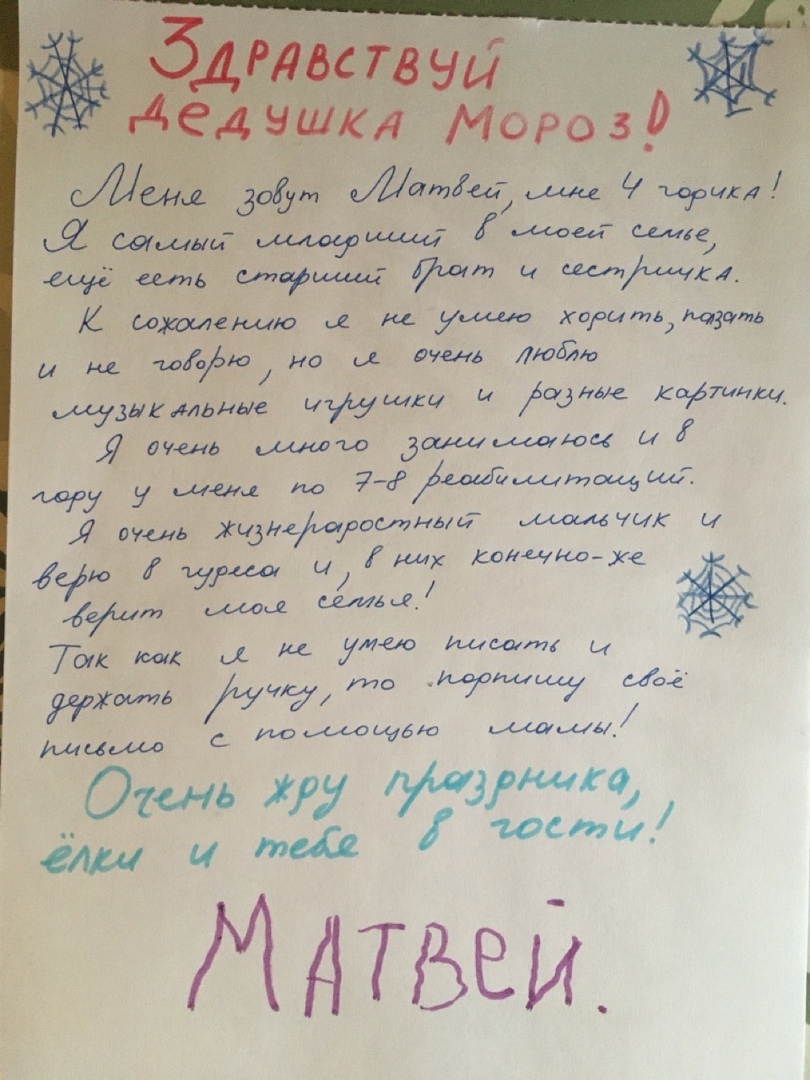 Здравствуй
дедушка Мороз!
Меня зовут Матвей, мне 4 годика!
Я самый младший в моей семье,
ещё есть старший брат и сестричка.
К сожалению я не умею ходить, ползать
и не говорю, но я очень люблю
музыкальные игрушки и разные картинки.
Я очень много занимаюсь и в
году у меня по 7-8 реабилитаций.
Я очень жизнерадостный мальчик и
верю в чудеса и, в них конечно-же
верит моя семья!
Так как я не умею писать и
держать ручку, то подпишу своё
письмо с помощью мамы!
Очень жду праздника,
ёлки и тебя в гости!
Матвей.